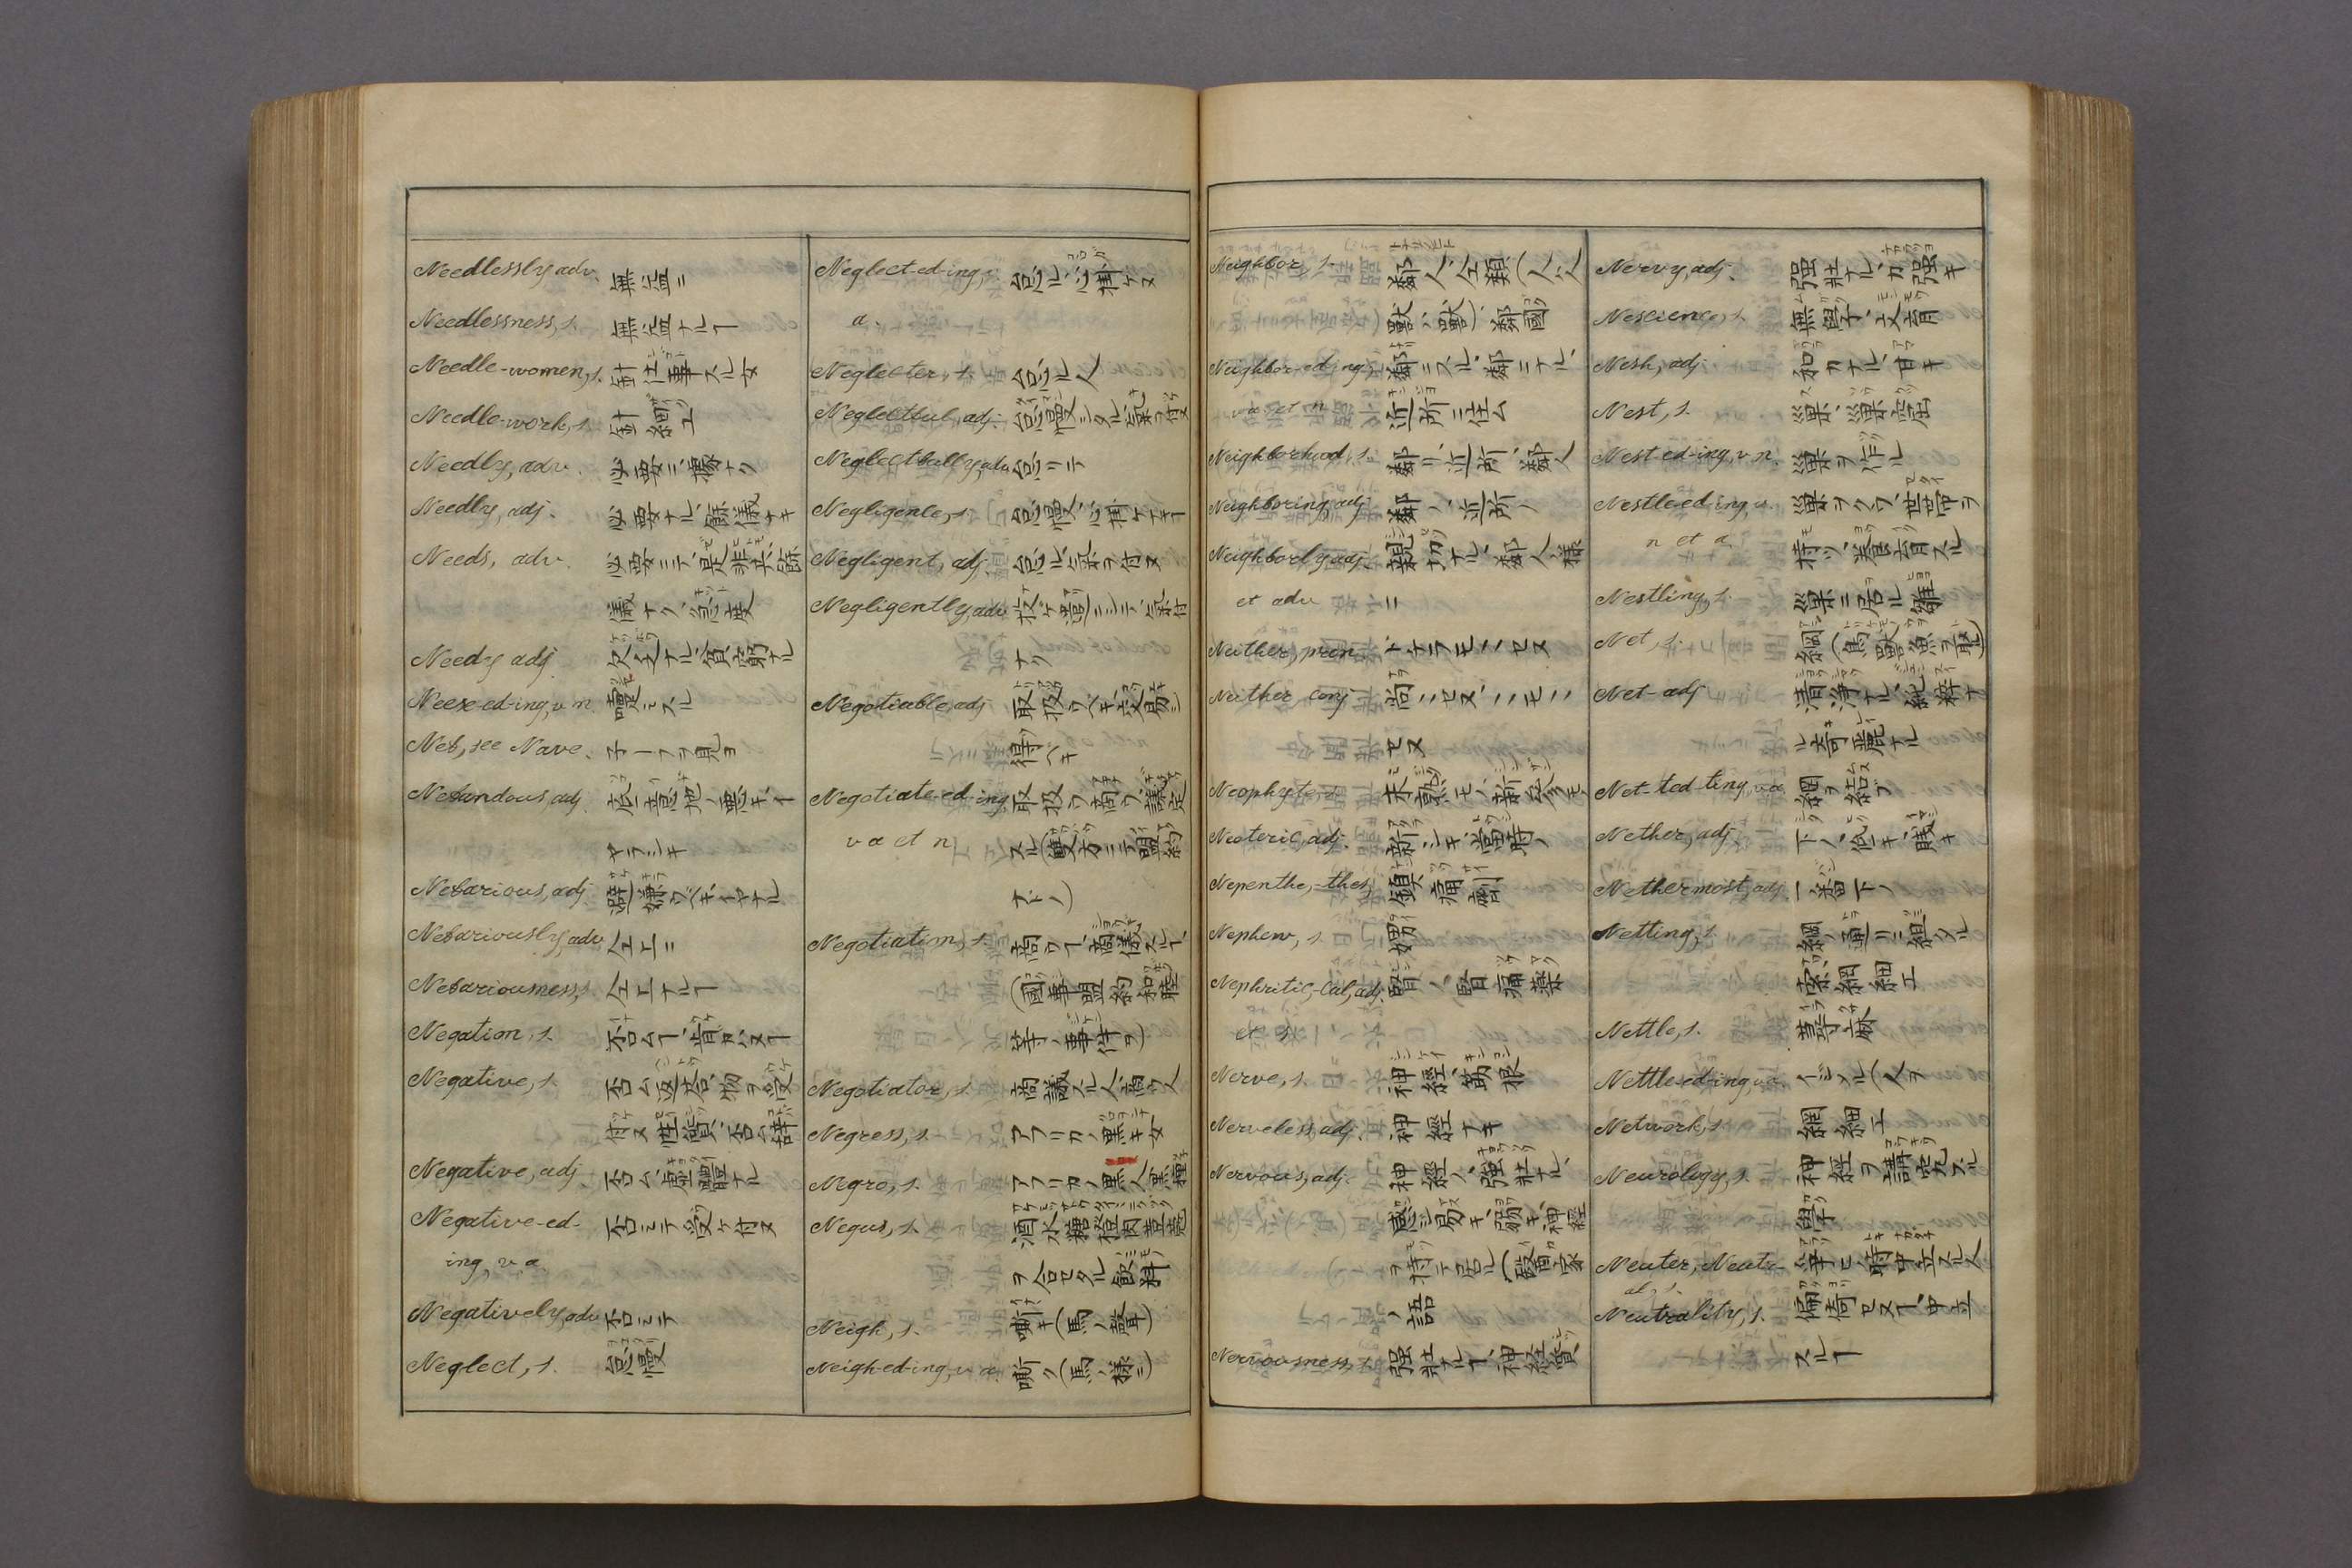 Needlessly, adv. 無益ニ
Needlessness, s. 無益ナルヿ
Needle-women, s. 針仕事スル女
Needle-work, s. 針細工
Needly, adv. 必要ニ、
Needly, adj. 必要ナル、餘儀ナキ
Needs, adv. 必要ニテ、是非共、餘
儀ナク、急度
Needy adj. 欠乏ナル、貧窮ナル
Neeze-ed-ing, v n. 嚏ミスル
Neb, see Nave. 子ーフヲ見ヨ
Nefandous, adj.
ヤラシキ
Nefarious, adj.
Nefariously, adv. 仝上ニ
Nefariousness, s. 仝上ナルヿ
Negation, s. 否ムヿ、肯ハヌヿ
Negative, s. 否ム返答、物ヲ受
付ヌ性質、否ム辞
Negative, adj. 否ム、虚體ナル
Negative-ed- 否ミテ受ケ付ヌ
ing, v a.
Negatively, adv. 否ミテ
Neglect, s. 怠慢
Neglect-ed-ing, v. 怠ル、心掛ケヌ
a.
Neglecter, s. 怠ル人
Neglectful, adj. 怠慢シタル、氣ヲ付ヌ
Neglectfully, adv. 怠リテ
Negligence, s. 怠慢、心掛ケナキヿ
Negligent, adj. 怠ル、氣ヲ付ヌ
Negligently, adv.
ナク
Negotiable, adj. 取扱ワベキ、交易シ
得ベキ
Negotiate-ed-ing 取扱ワ、商ワ、議定
v a et n. スル(雙方ニテ盟約
ナドノ)
Negotiation, s. 商ワヿ、商議スルヿ、
(國事盟約和睦
等ノ事件ヲ)
Negotiator, s. 商議スル人、商ワ人
Negress, s. アフリカノ黒キ女
Negro, s. アフリカノ黒人、黒種
Negus, s. 酒水糖橙肉荳蔲
ヲ合セタル飲料
Neigh, s. 嘶キ(馬ノ聲)
Neigh-ed-ing, v. a. 嘶ク(馬ノ様ニ)
Neighbor, s. 鄰人、仝類(人ハ人
獸ハ獸)、鄰國
Neighbor-ed-ing, 鄰ニスル、鄰ニナル、
v a et n. 近所ニ住ム
Neighborhood, s. 鄰リ、近所、鄰人
Neighboring, adj. 鄰ノ、近所ノ
Neighborly adj. 親切ナル、鄰人様
et adv. ニ
Neither, pron. ドチラモ〻セヌ
Neither conj. 尚〻セヌ、〻モ〻
セヌ
Neophyte, s. 未熟モノ、新參モノ
Neoteric, adj. 新シキ、當時ノ
Nepenthe, -thes, 鎮痛劑
Nephew, s. 甥
Nephritic, -cal, adj. 腎ノ、腎痛藥
et s.
Nerve, s. 神經、筋根
Nerveless, adj. 神經ナキ
Nervous, adj. 神經ノ、強壯ナル、
感シ易キ、弱キ神経
ヲ持テ居ル(醫家
ノ語
Nervousness, s. 强壯ナルヿ、神経質
Nervy, adj. 强壯ナル、力强キ
Nescience, s. 無學、文盲
Nesh, adj. 和カナル、甘キ
Nest, s. 巣、巣窟
Nest-ed-ing, v n. 巣ヲ作ル
Nestle-ed-ing, v. 巣ヲクフ、世帶ヲ
n et a. 持ツ、養育スル
Nestling, s. 巣ニ居ル雛
Net, s. 網(鳥獸魚ヲ取ル)
Net-adj. 清淨ナル、純粹ナ
ル、奇麗ナル
Net-ted-ting, v a. 網ヲ結フ
Nether, adj. 下ノ、低キ、賎キ
Nethermost, adj. 一番下ノ
Netting, s. 網ノ通リニ組タル
網細工
Nettle, s. 蕁麻
Nettle-ed-ing, v a. イジメル(人ヲ
Network, s. 網細工
Neurology, s. 神経ヲ講究スル
學
Neuter, Neutr- 爭ヒノ時中立スル人
al, s.
Neutrality, s. 偏倚セヌヿ、中立
スルヿ